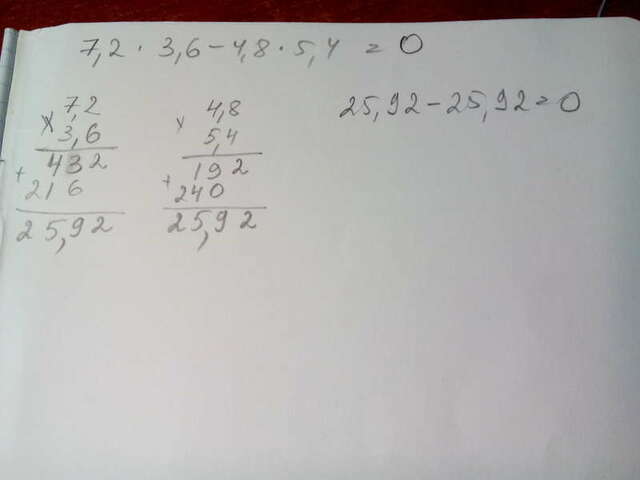 7,2 · 3,6 - 4,8 · 5,4 = 0
× 7,2
3,6
+ 432
216
25,92
× 4,8
5,4
+ 192
240
25,92
25,92 - 25,92 = 0